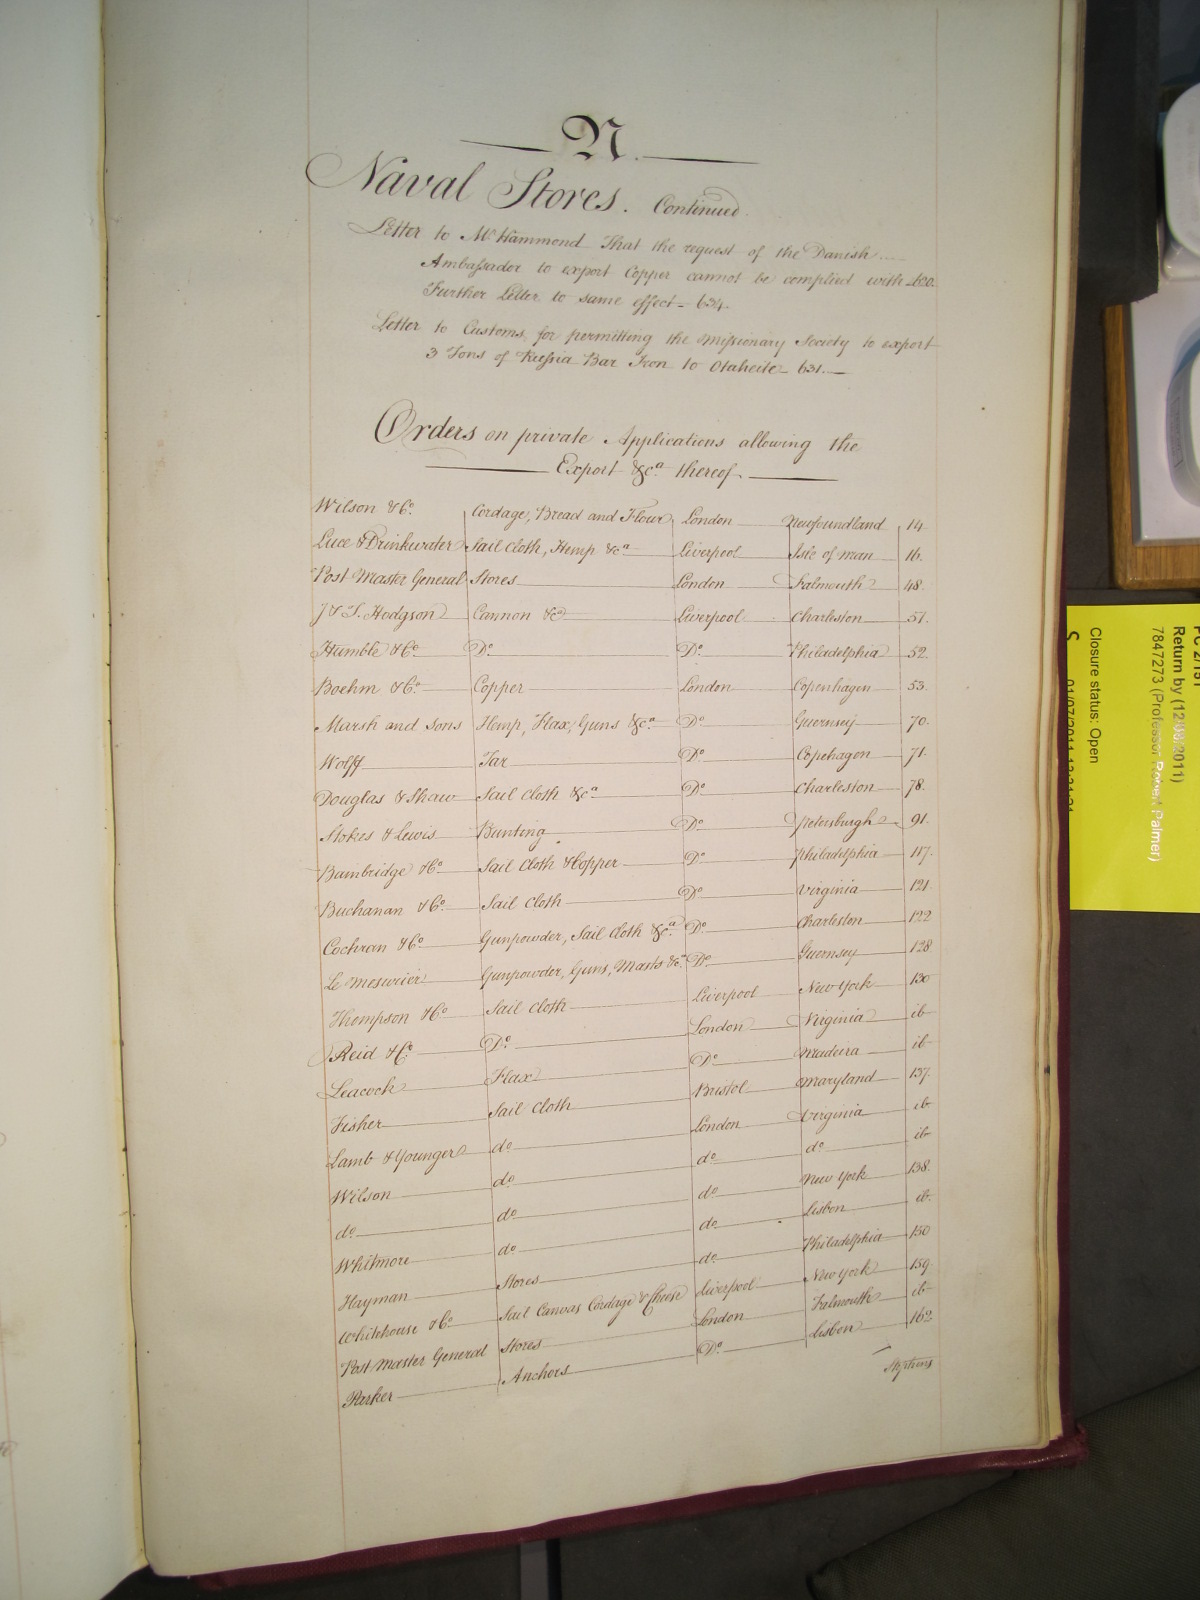 N.
Naval Stores. Continued.
Letter to Mr. Hammond That the request of the Danish
Ambassador to export Copper cannot be complied with 620.
Further Letter to same effect - 634.
Letter to Customs, for permitting the Missionary Society to export
3 Tons of Russia Bar Iron to Otaheite - 631.
Orders on private Applications allowing the
Export &ca. thereof.
Wilson & Co. Cordage, Bread and Flour London Newfoundland 14.
Luce & Drinkwater Sail Cloth, Hemp &ca. Liverpool Isle of Man 16.
Post Master General Stores London Falmouth 48.
J & T. Hodgson Cannon &c Liverpool Charleston 51.
Humble & Co. Do. Do. Philadelphia 52.
Boehm & Co. Copper London Copenhagen 53.
Marsh and Sons Hemp, Flax, Guns &ca. Do. Guernsey 70.
Wolff Tar Do. Copehagen 71.
Douglas & Shaw Sail Cloth &ca. Do. Charleston 78.
Stokes & Lewis Bunting Do. Petersburgh 91.
Bainbridge & Co. Sail Cloth & Copper Do. Philadelphia 117.
Buchanan & Co. Sail Cloth Do. Virginia 121.
Cochran & Co. Gunpowder, Sail Cloth &ca. Do. Charleston 122
Le Mesurier Gunpowder, Guns, Masts &c. Do. Guernsey 128
Thompson & Co. Sail Cloth Liverpool New York 130
Reid & Co. Do. London Virginia ib.
Leacock Flax Do. Madeira ib.
Fisher Sail Cloth Bristol Maryland 137.
Lamb & Younger do. London Virginia ib.
Wilson do. do. do. ib.
do. do. do. New York 138.
Whitmore do. do. Lisbon ib.
Hayman Stores do. Philadelphia 150
Whitehouse & Co. Sail Canvas Cordage & Cheese Liverpool New York 159.
Post Master General Stores London Falmouth ib.
Parker Anchors Do. Lisbon 162.
Stephens
Return by (12/08/2011)
7847273 (Professor Robert Palmer)
Closure status: Open